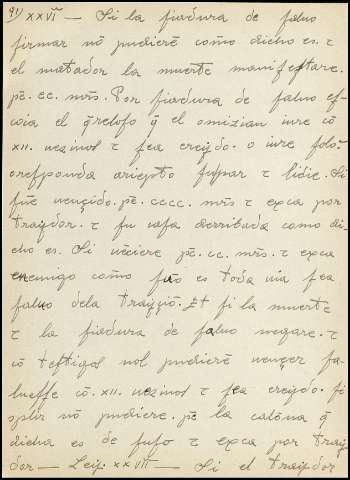 91) XXVI — Si la fiadura de faluo
firmar nō pudierē como dicho es. τ
el matador la muerte manifestare.
pē. cc. mrs. Por fiadura de faluo ef-
coia el q̄relofo q̄ el omizian iure cō
XII. uezinos τ fea creydo. o iure folo
orefponda ariepto τ lidie. Si
fuē uençido. pē. cccc. mrs τ exca por
traydor. τ fu cafa derribada como di-
cho es. Si uēciere pē. cc. mrs. τ exca
enemigo como es toda uia fea
faluo dela trayçiō. Et fi la muerte
τ la fiadura de faluo negare. τ
cō teftigos nol pudierē uençer fa-
lueffe cō. XII. uezinos τ fea creydo. fi
nō pudiere. pē la calōna q̄
dicha es de fufo τ exca por tray
dor — Ley. XXVII — Si el traydor